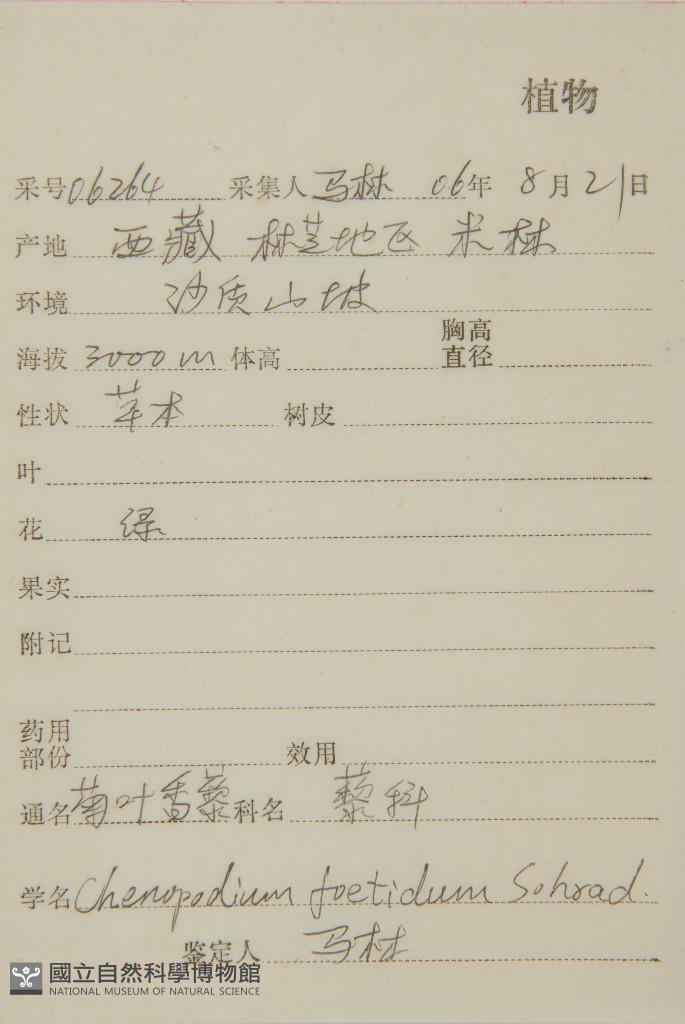 植物
采号 06264 采集人 马林 06年 8月21日
产地 西藏 林芝地区 米林
环境 沙质山坡
海拔 3000m 体高 胸高直径
性状 草本 树皮
叶
花 绿
果实
附记
药用部份 效用
通名 菊叶香藜 科名 藜科
学名 Chenopodium foetidum Schrad.
鉴定人 马林
國立自然科學博物館
NATIONAL MUSEUM OF NATURAL SCIENCE